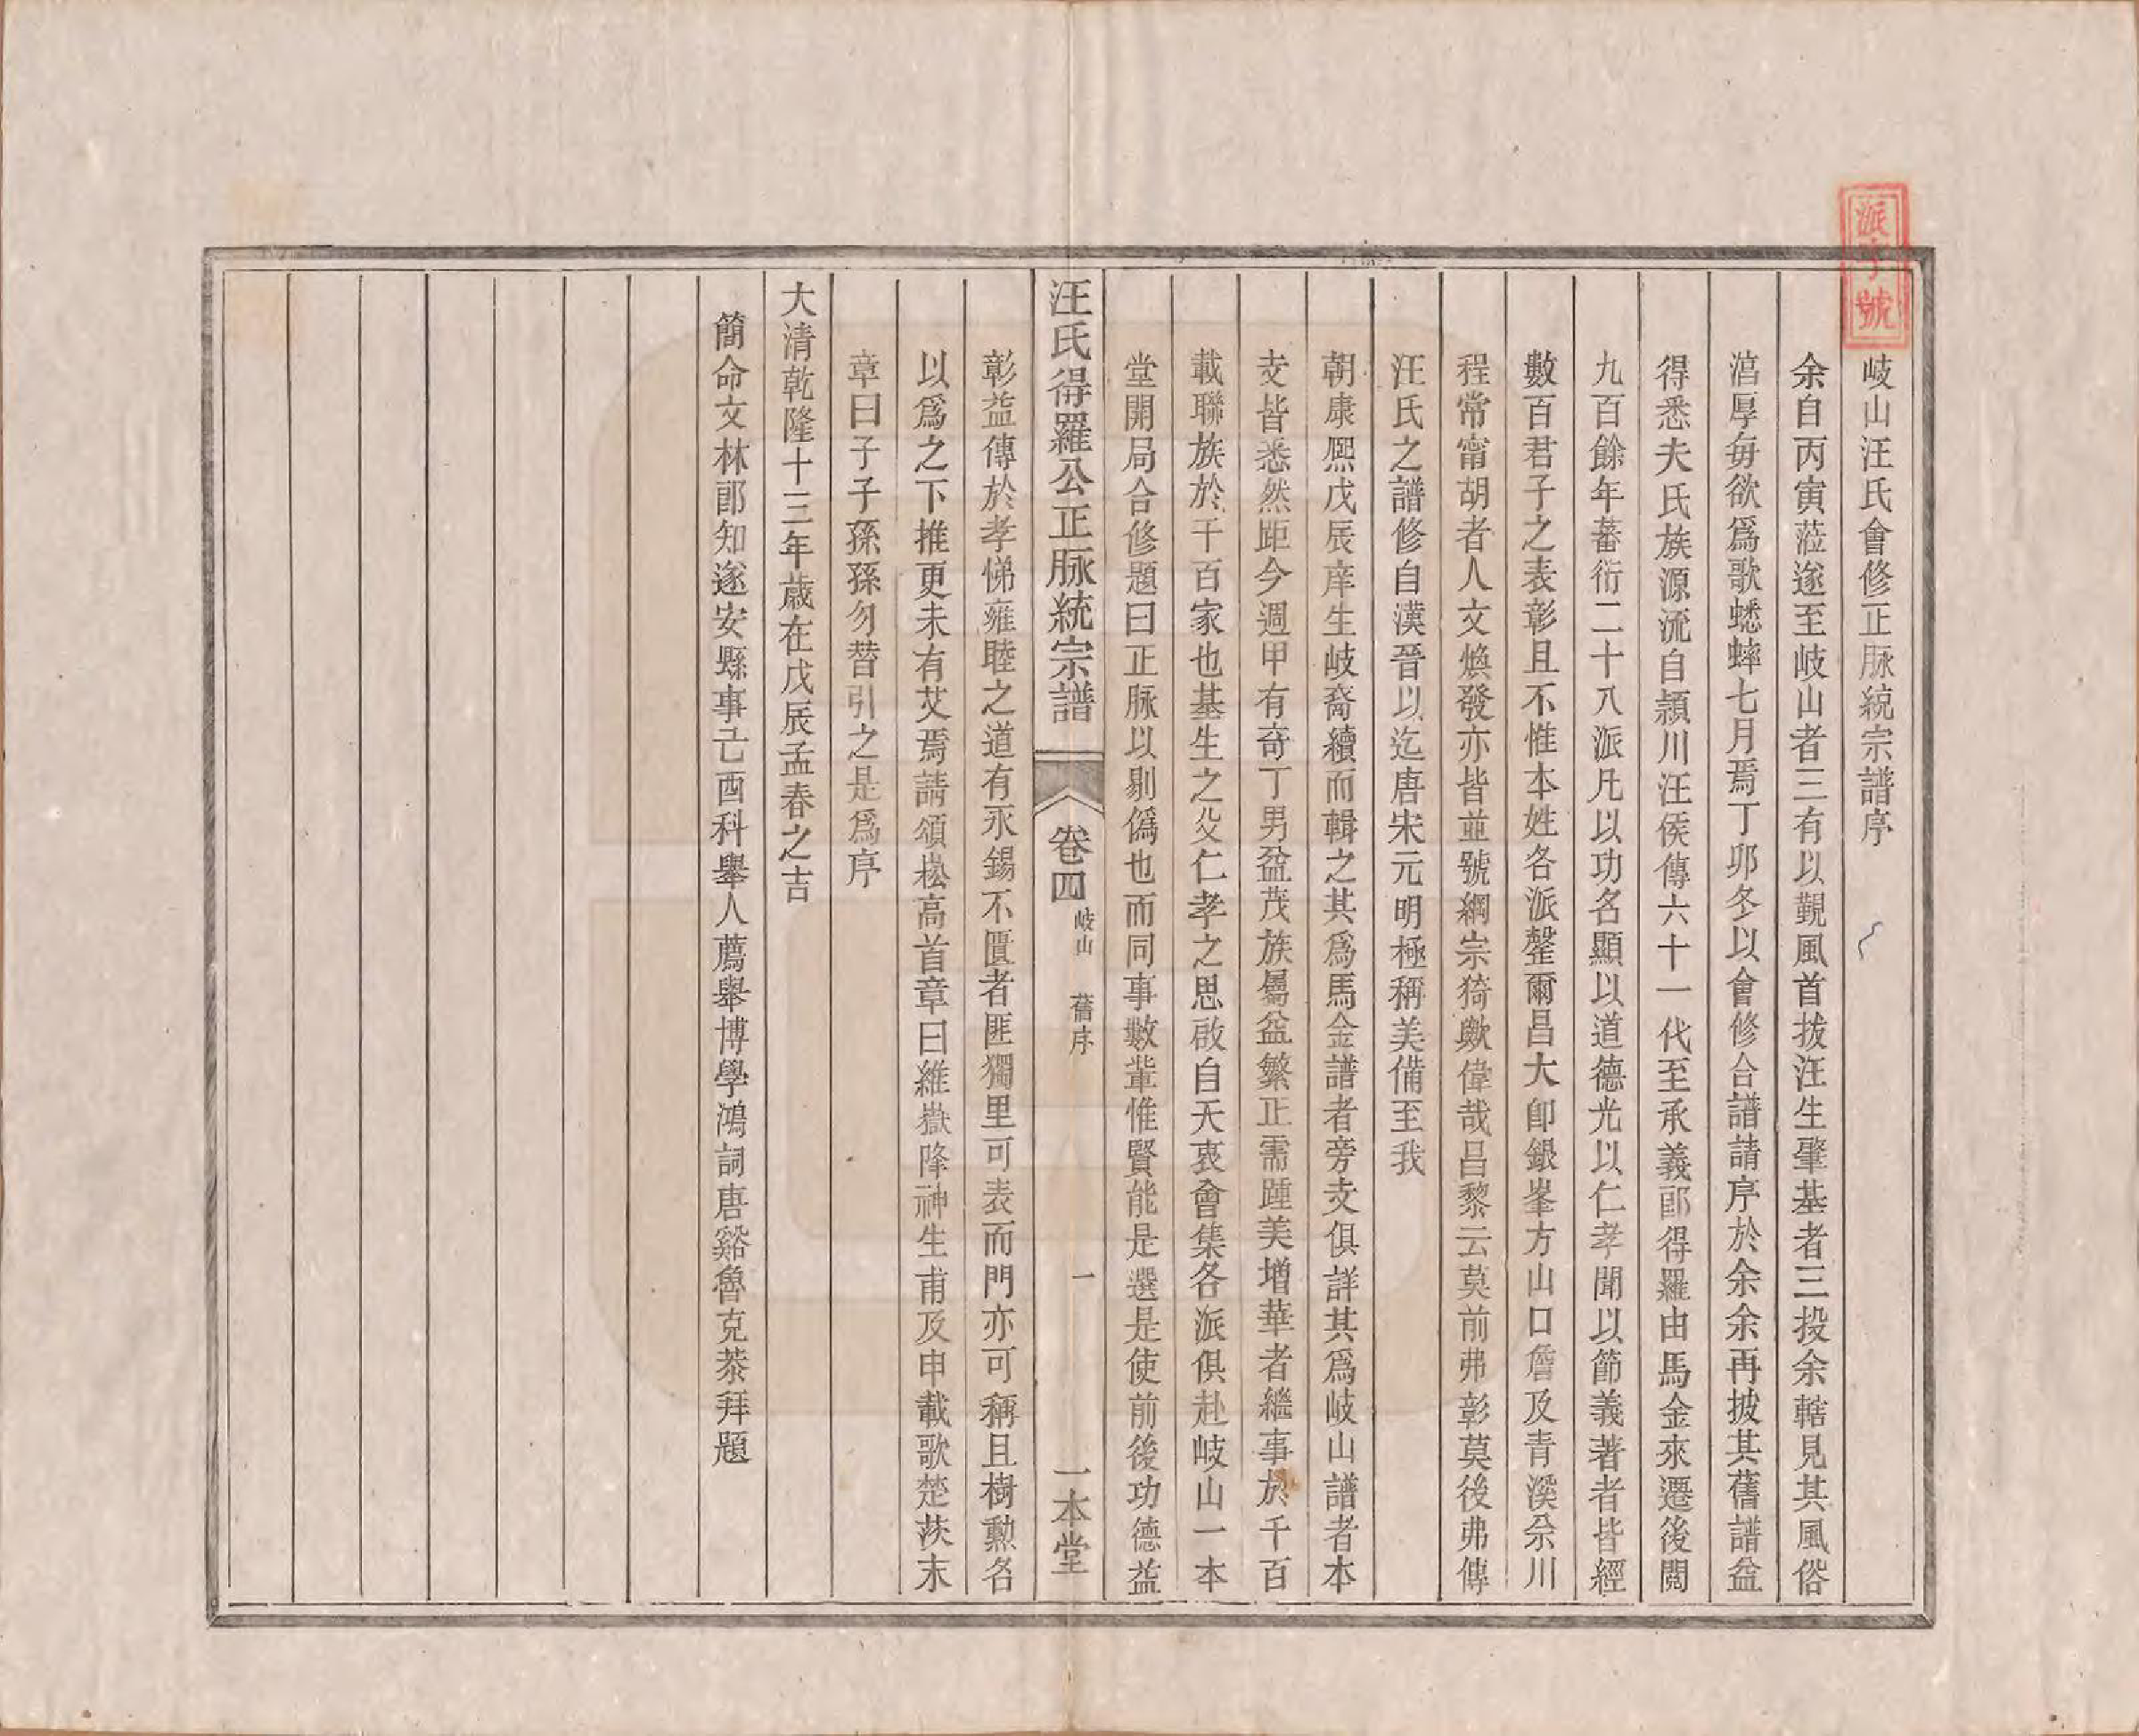 派字號
岐山汪氏會修正脉統宗譜序
余自丙寅蒞遂至岐山者三有以觀風首拔汪生肇基者三投余轄見其風俗
湻厚每欲爲歌蟋蟀七月焉丁卯冬以會修合譜請序於余余再披其舊譜益
得悉夫氏族源流自潁川汪侯傳六十一代至承義郎得羅由馬金來遷後閱
九百餘年蕃衍二十八派凡以功名顯以道德光以仁孝聞以節義著者皆經
數百君子之表彰且不惟本姓各派罄爾昌大卽銀峯方山口詹及青溪佘川
程常甯胡者人文煥發亦皆並號綱宗猗歟偉哉昌黎云莫前弗彰莫後弗傳
汪氏之譜修自漢晉以迄唐宋元明極稱美備至我
朝康熙戊辰庠生岐裔續而輯之其爲馬金譜者旁支俱詳其爲岐山譜者本
支皆悉然距今週甲有奇丁男益茂族屬益繁正需踵美增華者繼事於千百
載聯族於千百家也基生之父仁孝之思啟自天衷會集各派俱赴岐山一本
堂開局合修題曰正脉以剔僞也而同事數輩惟賢能是選是使前後功德益
汪氏得羅公正脉統宗譜 卷四 岐山 舊序 一 一本堂
彰益傳於孝悌雍睦之道有永錫不匱者匪獨里可表而門亦可稱且樹勲名
以爲之下推更未有艾焉請頌崧高首章曰維嶽降神生甫及申載歌楚茨末
章曰子子孫孫勿替引之是爲序
大清乾隆十三年歲在戊辰孟春之吉
簡命文林郎知遂安縣事己酉科舉人薦舉博學鴻詞唐谿魯克恭拜題